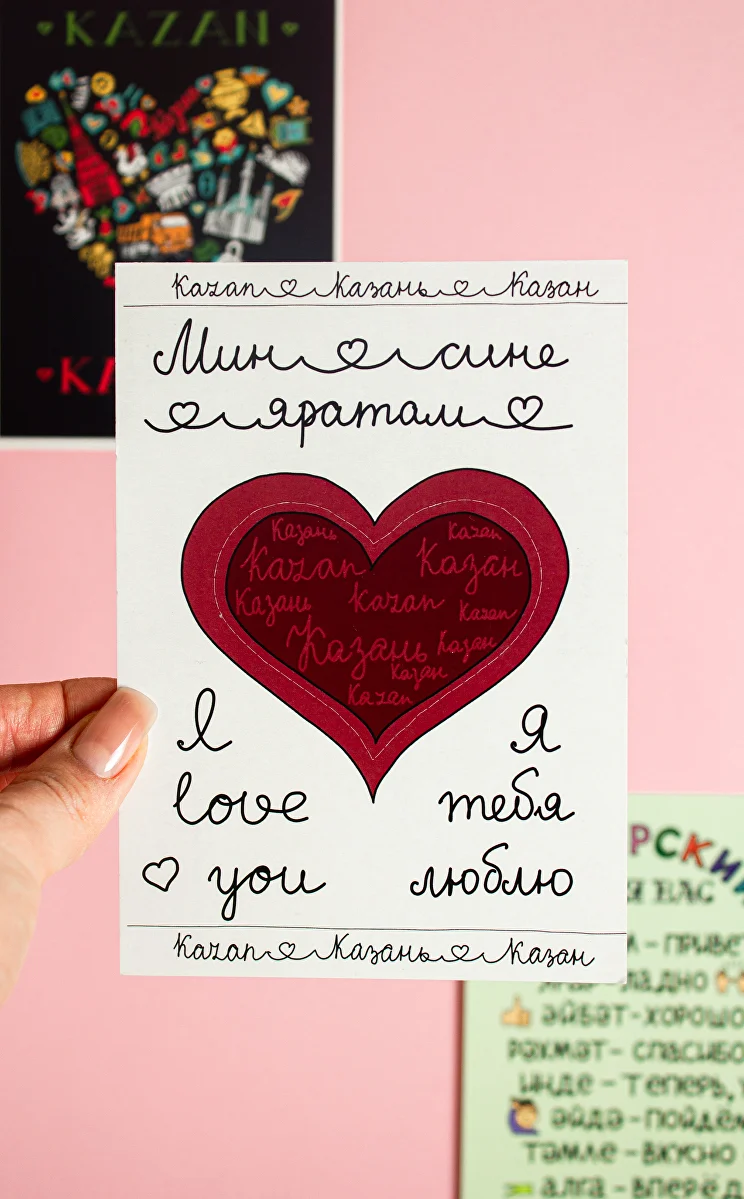 KAZAN
Kazan Казань Казан
Мин сине
яратам
Казань Kazan
Kazan Казан
Казань Kazan Kazan
Казань Казан
Казан
Kazan
I Я
love тебя
you люблю
Kazan Казань Казан
РСКИ
Я ВАС
– ПРИВЕ
ЛАДНО
ӘЙБӘТ – ХОРОШО
РӘХМӘТ – СПАСИБО
ИНДЕ – ТЕПЕРЬ,
ӘЙДӘ – ПОЙДЁМ
ТӘМЛЕ – ВКУСНО
АЛГА – ВПЕРЁД